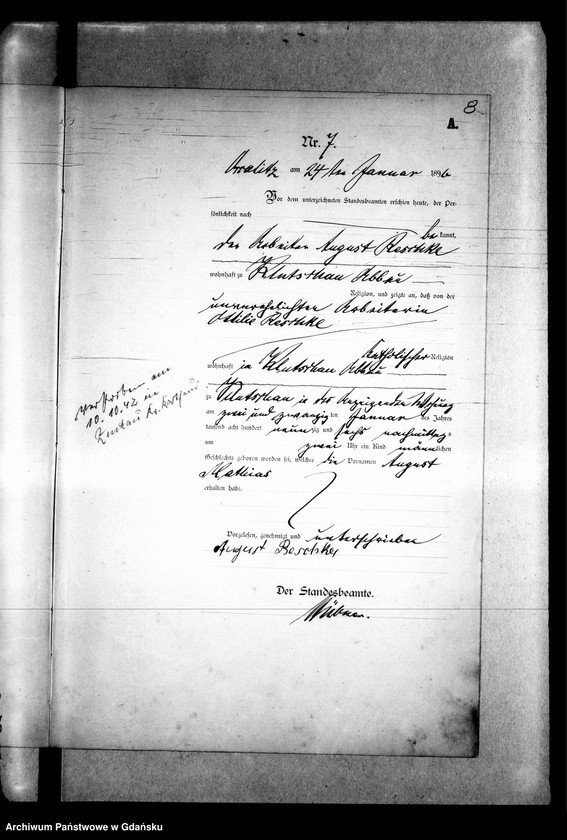 8
A.
Nr. 7.
am 24 ten Januar 1896
Vor dem unterzeichneten Standesbeamten erschien heute, der Per-
sönlichkeit nach
be kannt,
der Arbeiter August Reschke
wohnhaft zu Klutschau Abbau
Religion, und zeigte an, daß von der
unverehelichten Arbeiterin
Ottilie Reschke
katholischer Religion
wohnhaft in Klutschau Abbau
zu Klutschau in des Anzeigenden Wohnung
am zwei und zwanzig ten Januar des Jahres
tausend acht hundert neunzig und sechs nachmittags
um zwei Uhr ein Kind männlichen
Geschlechts geboren worden sei, welches die Vornamen August
Mathias
erhalten habe.
Vorgelesen, genehmigt und unterschrieben
August Reschke
Der Standesbeamte.
Hübner.
verstorben am
10.10.42 in
Zuckau Kr. Karthaus
Archiwum Państwowe w Gdańsku